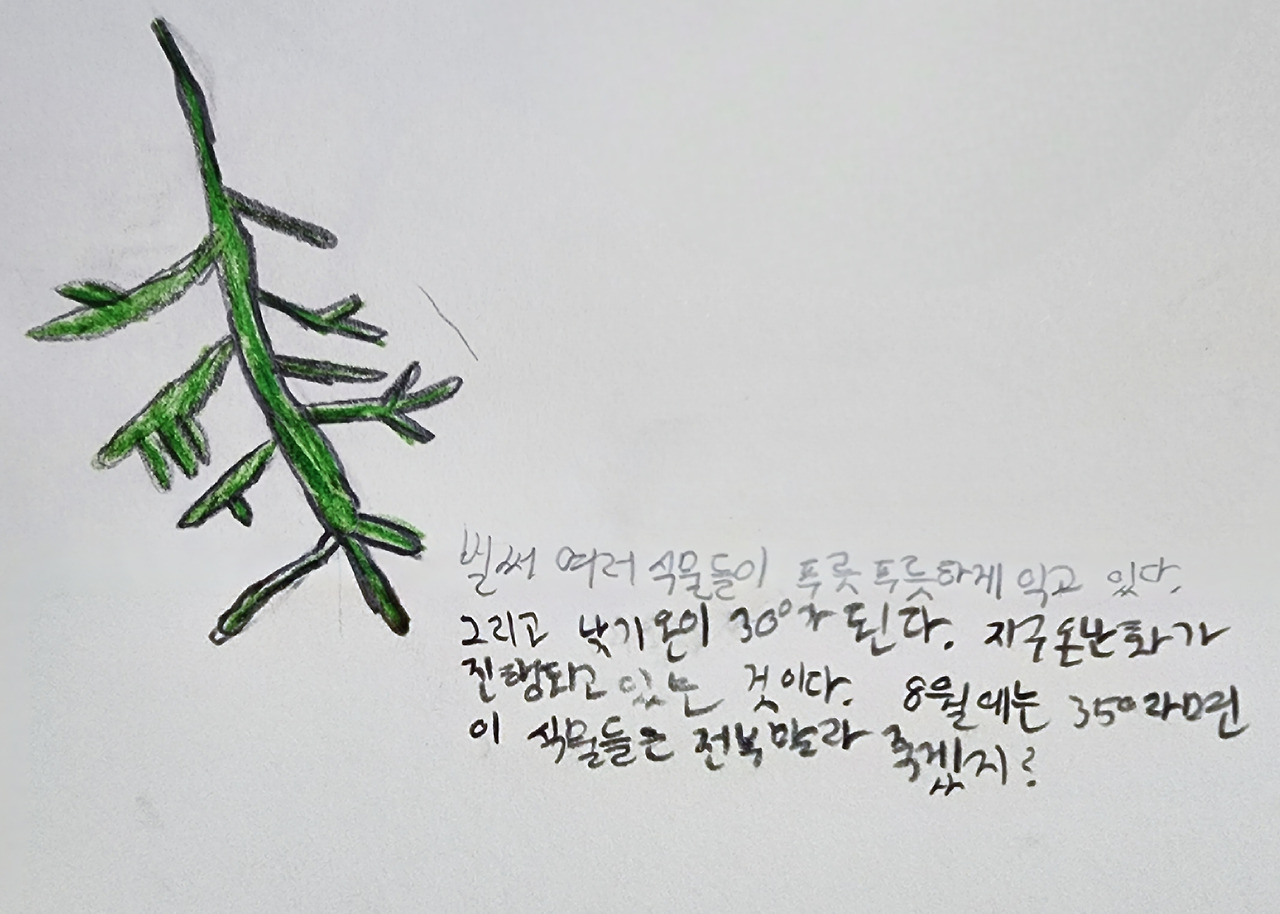 벌써 여러 식물들이 푸릇푸릇하게 익고 있다.
그리고 낮기온이 30°가 된다. 지구온난화가
진행되고 있는 것이다. 8월에는 35°라면
이 식물들은 전부 말라 죽겠지?